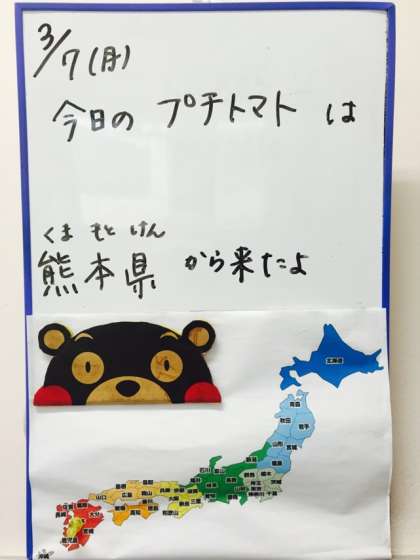 3/7(月)
今日の プチトマト は
くま もと けん
熊本県 から来たよ
北海道
青森
秋田
岩手
山形
宮城
福島
新潟
石川
富山
群馬
栃木
茨城
埼玉
東京
神奈川 千葉
長野
岐阜
福井
鳥取
島根
岡山
広島
山口
兵庫
京都
大阪
三重
和歌山
香川
徳島
愛媛
高知
福岡
佐賀
長崎
大分
宮崎
鹿児島
沖縄